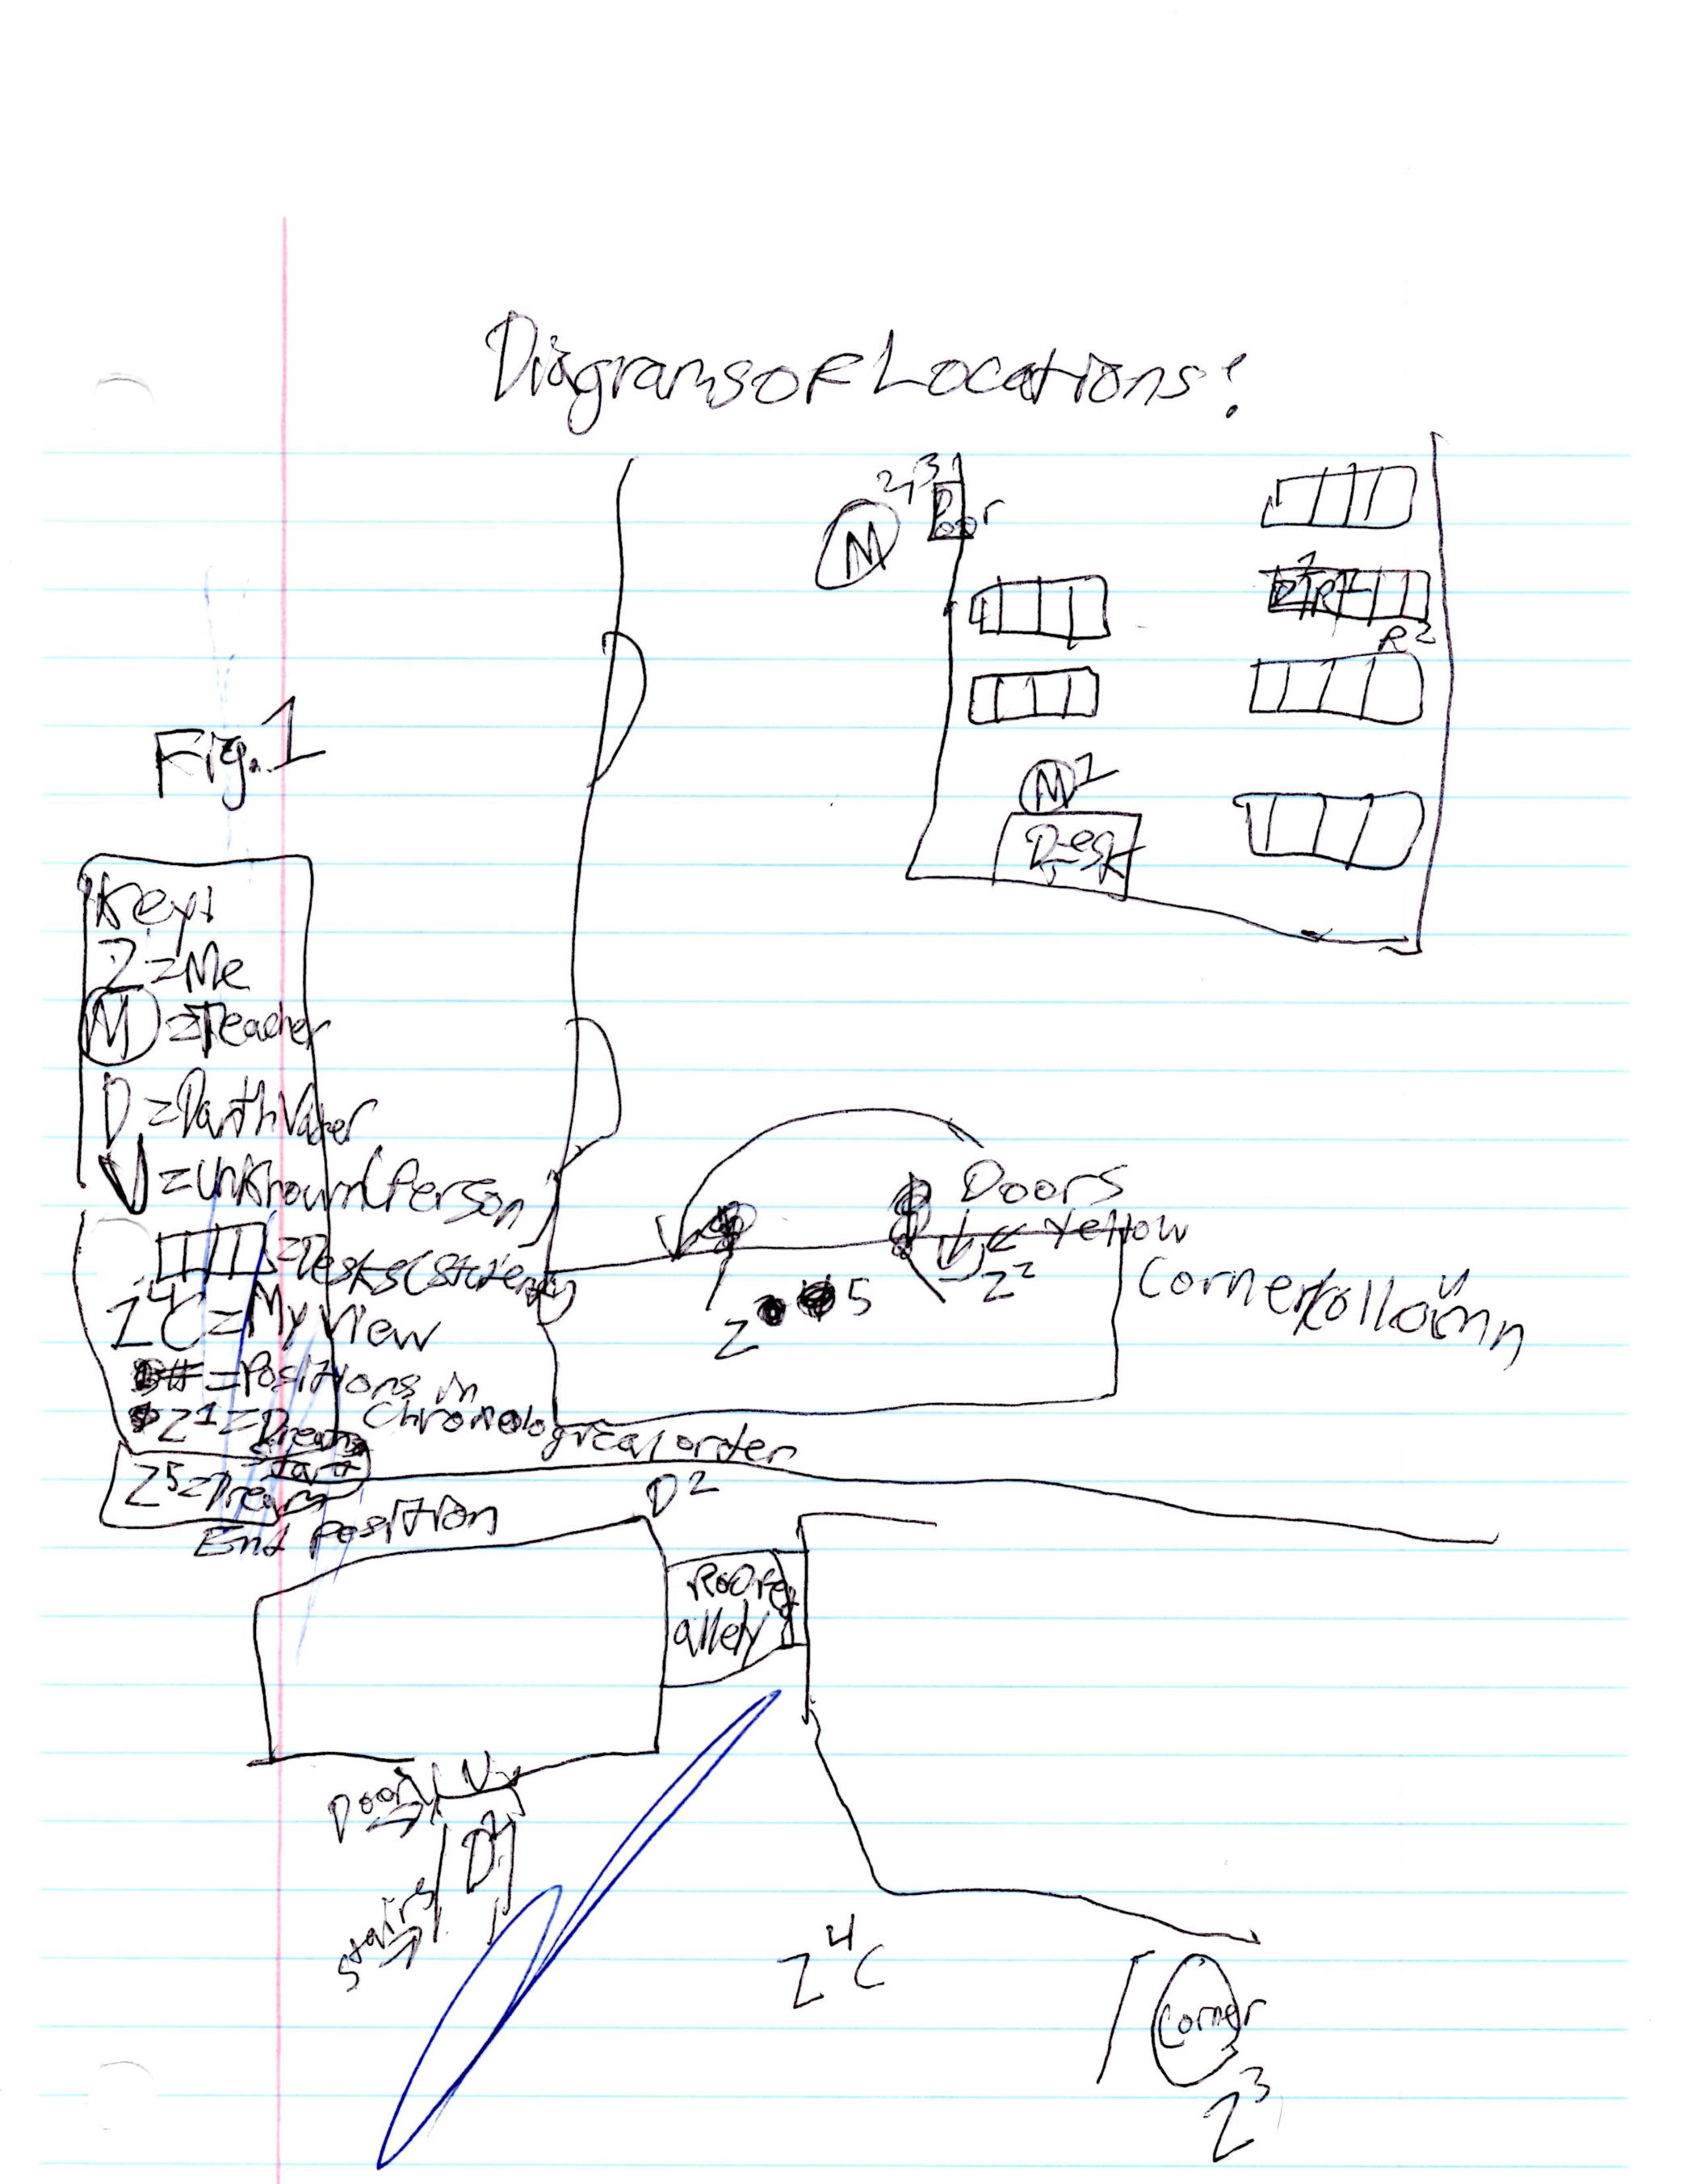 Diagrams of Locations:
2,3
M
Door
R²
Fig. 1
M 1
Desk
Key:
Z = Me
M = Teacher
D = Darth Vader
U = Unknown (Person)
= Desks (Student)
Z⁴C = My View
# = Positions in
Chronological order
Z¹ = Dream
Start
Z⁵ = Dream
End position
Doors
← Yellow
Z²
Corner/Collumn
Z 5
D²
Roofed
alley
Door
U
D¹
stairs
Z⁴C
Corner
Z³